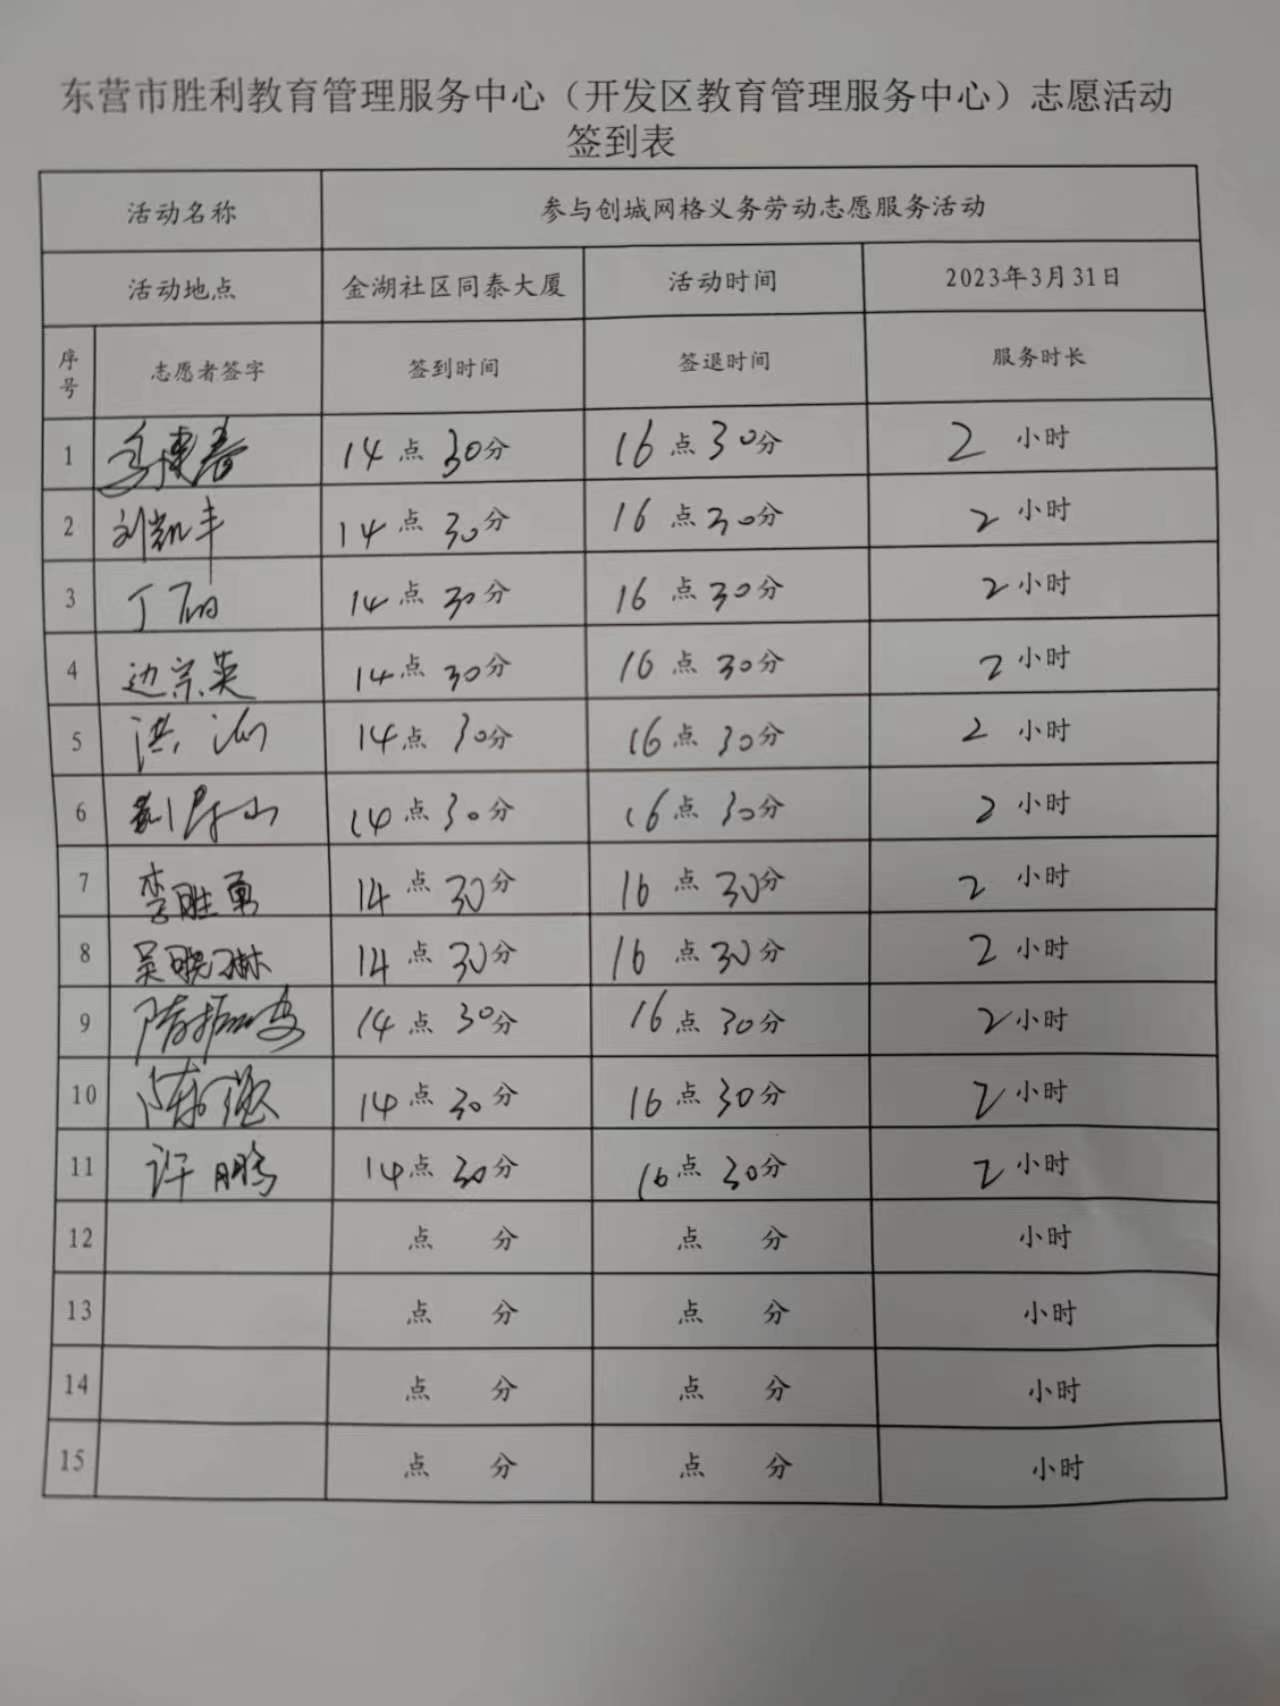 东营市胜利教育管理服务中心（开发区教育管理服务中心）志愿活动
签到表
活动名称 参与创城网格义务劳动志愿服务活动
活动地点 金湖社区同泰大厦 活动时间 2023年3月31日
序号 志愿者签字 签到时间 签退时间 服务时长
1 14点30分 16点30分 2小时
2 刘凯丰 14点30分 16点30分 2小时
3 丁丽 14点30分 16点30分 2小时
4 边宗英 14点30分 16点30分 2小时
5 洪 14点30分 16点30分 2小时
6 14点30分 16点30分 2小时
7 李胜勇 14点30分 16点30分 2小时
8 吴晓琳 14点30分 16点30分 2小时
9 14点30分 16点30分 2小时
10 陈强 14点30分 16点30分 2小时
11 许鹏 14点30分 16点30分 2小时
12 点 分 点 分 小时
13 点 分 点 分 小时
14 点 分 点 分 小时
15 点 分 点 分 小时